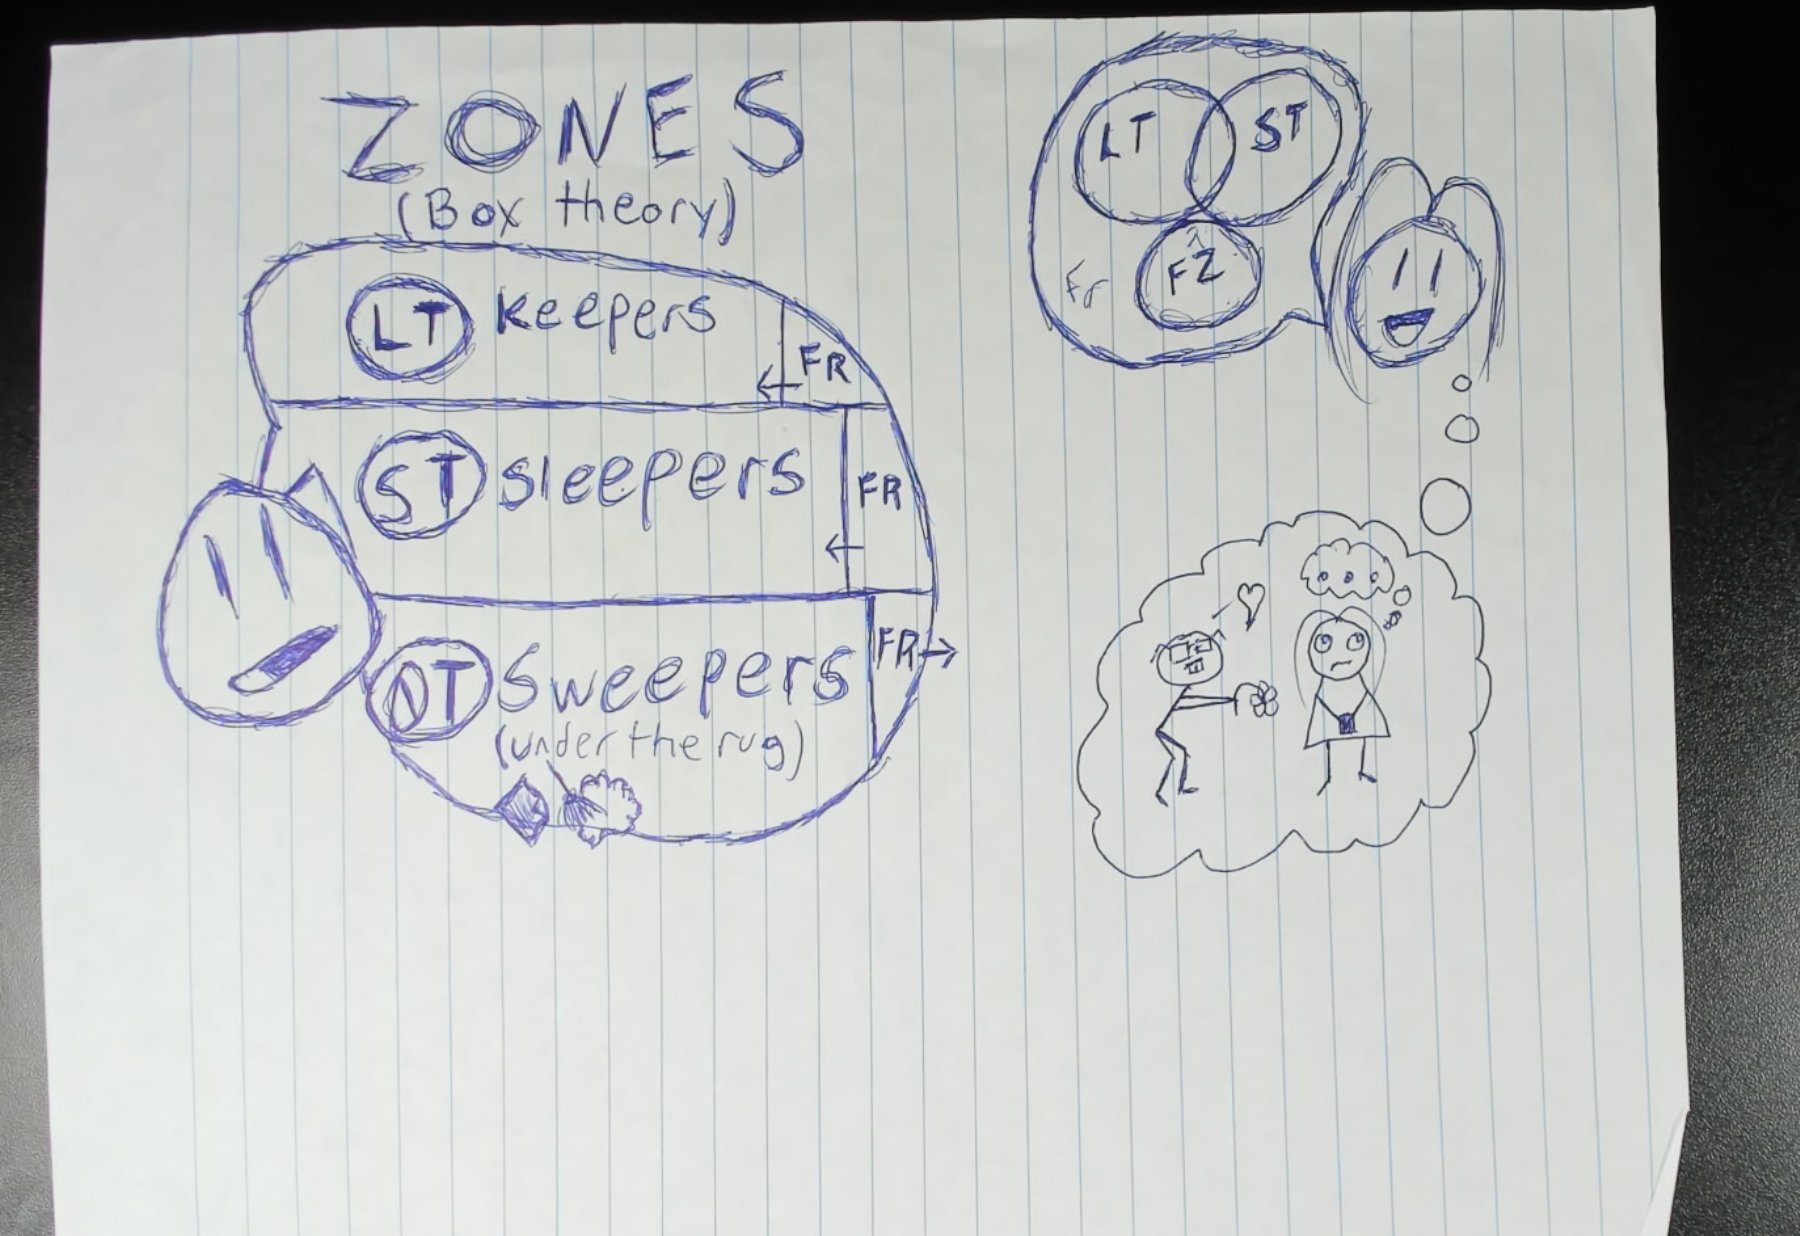 ZONES
(Box theory)
LT keepers
FR
ST sleepers
FR
NT Sweepers
FR
(under the rug)
LT
ST
FZ
Fr